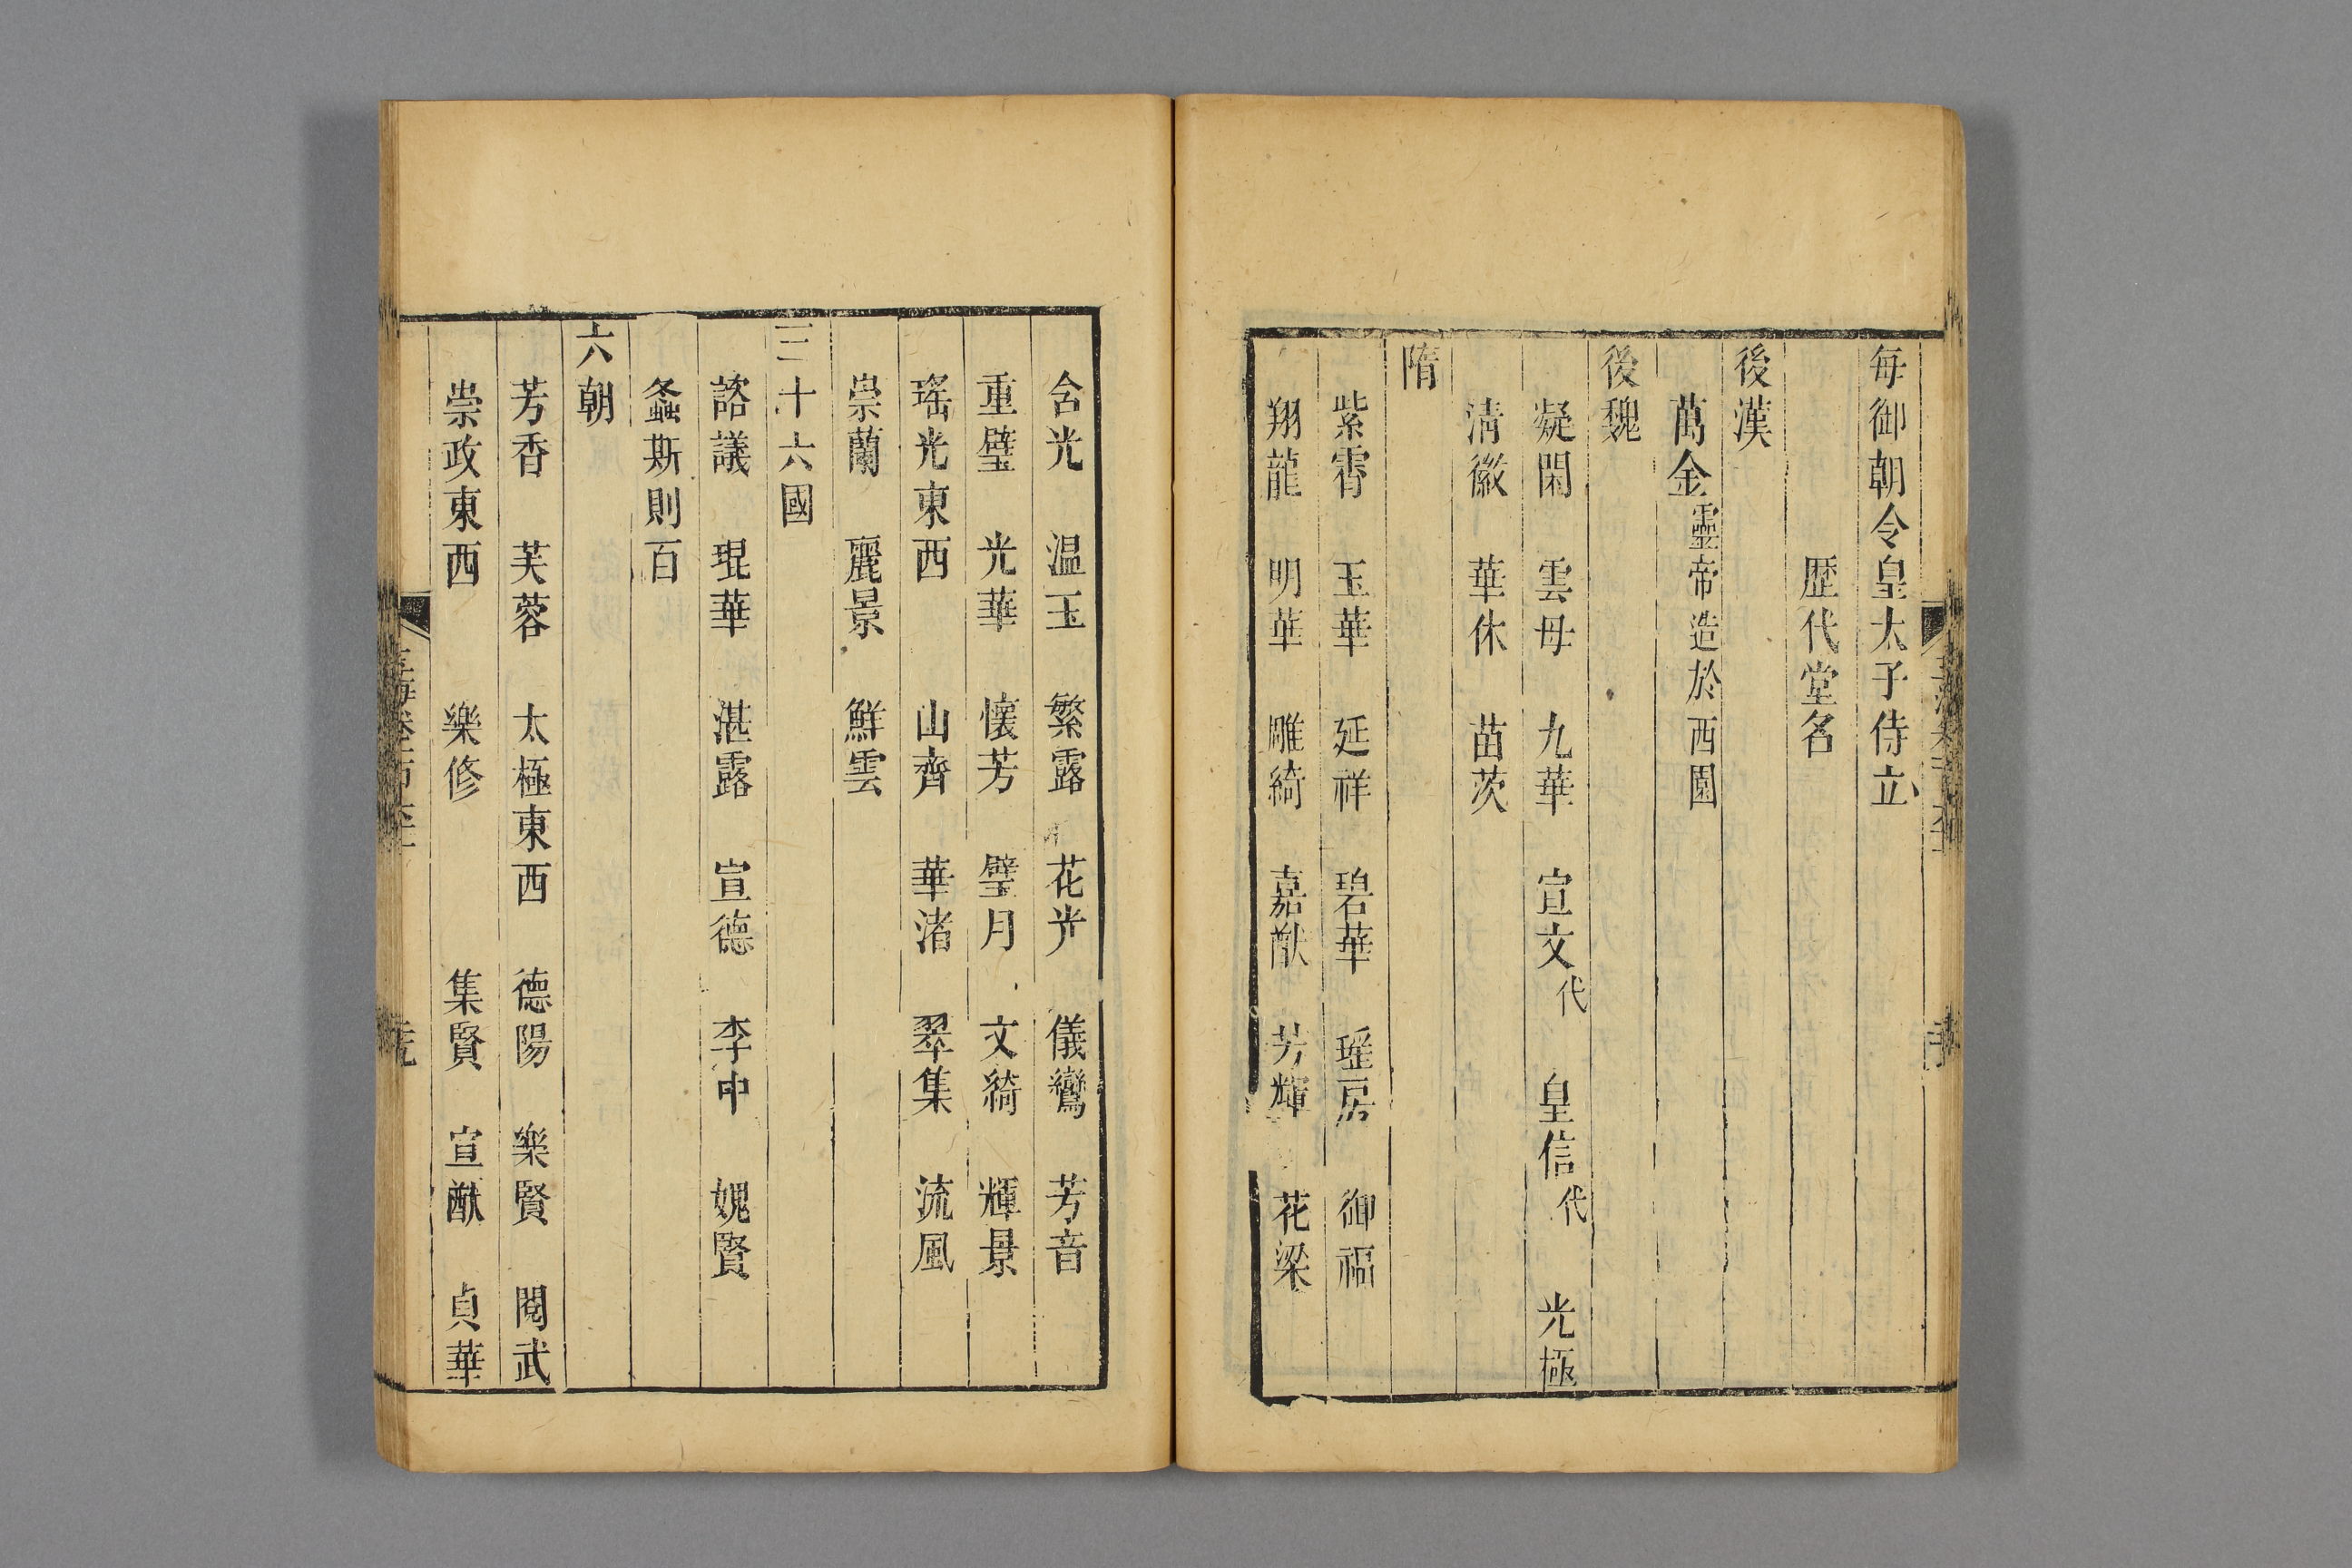 每御朝令皇太子侍立
歴代堂名
後漢
萬金靈帝造於西園
後魏
凝閑 雲母 九華 宣文代 皇信代 光極
清徽 華林 苗茨
隋
紫霄 玉華 延祥 碧華 瑶房 御福
翔龍 明華 雕綺 嘉猷 芳輝 花梁
含光 温玉 繁露 花光 儀鸞 芳音
重璧 光華 懷芳 璧月 文綺 輝景
瑤光東西 山齊 華渚 翠集 流風
崇蘭 麗景 鮮雲
三十六國
諮議 琨華 湛露 宣德 李中 媿賢
螽斯則百
六朝
芳香 芙蓉 太極東西 德陽 樂賢 閱武
崇政東西 樂修 集賢 宣猷 貞華